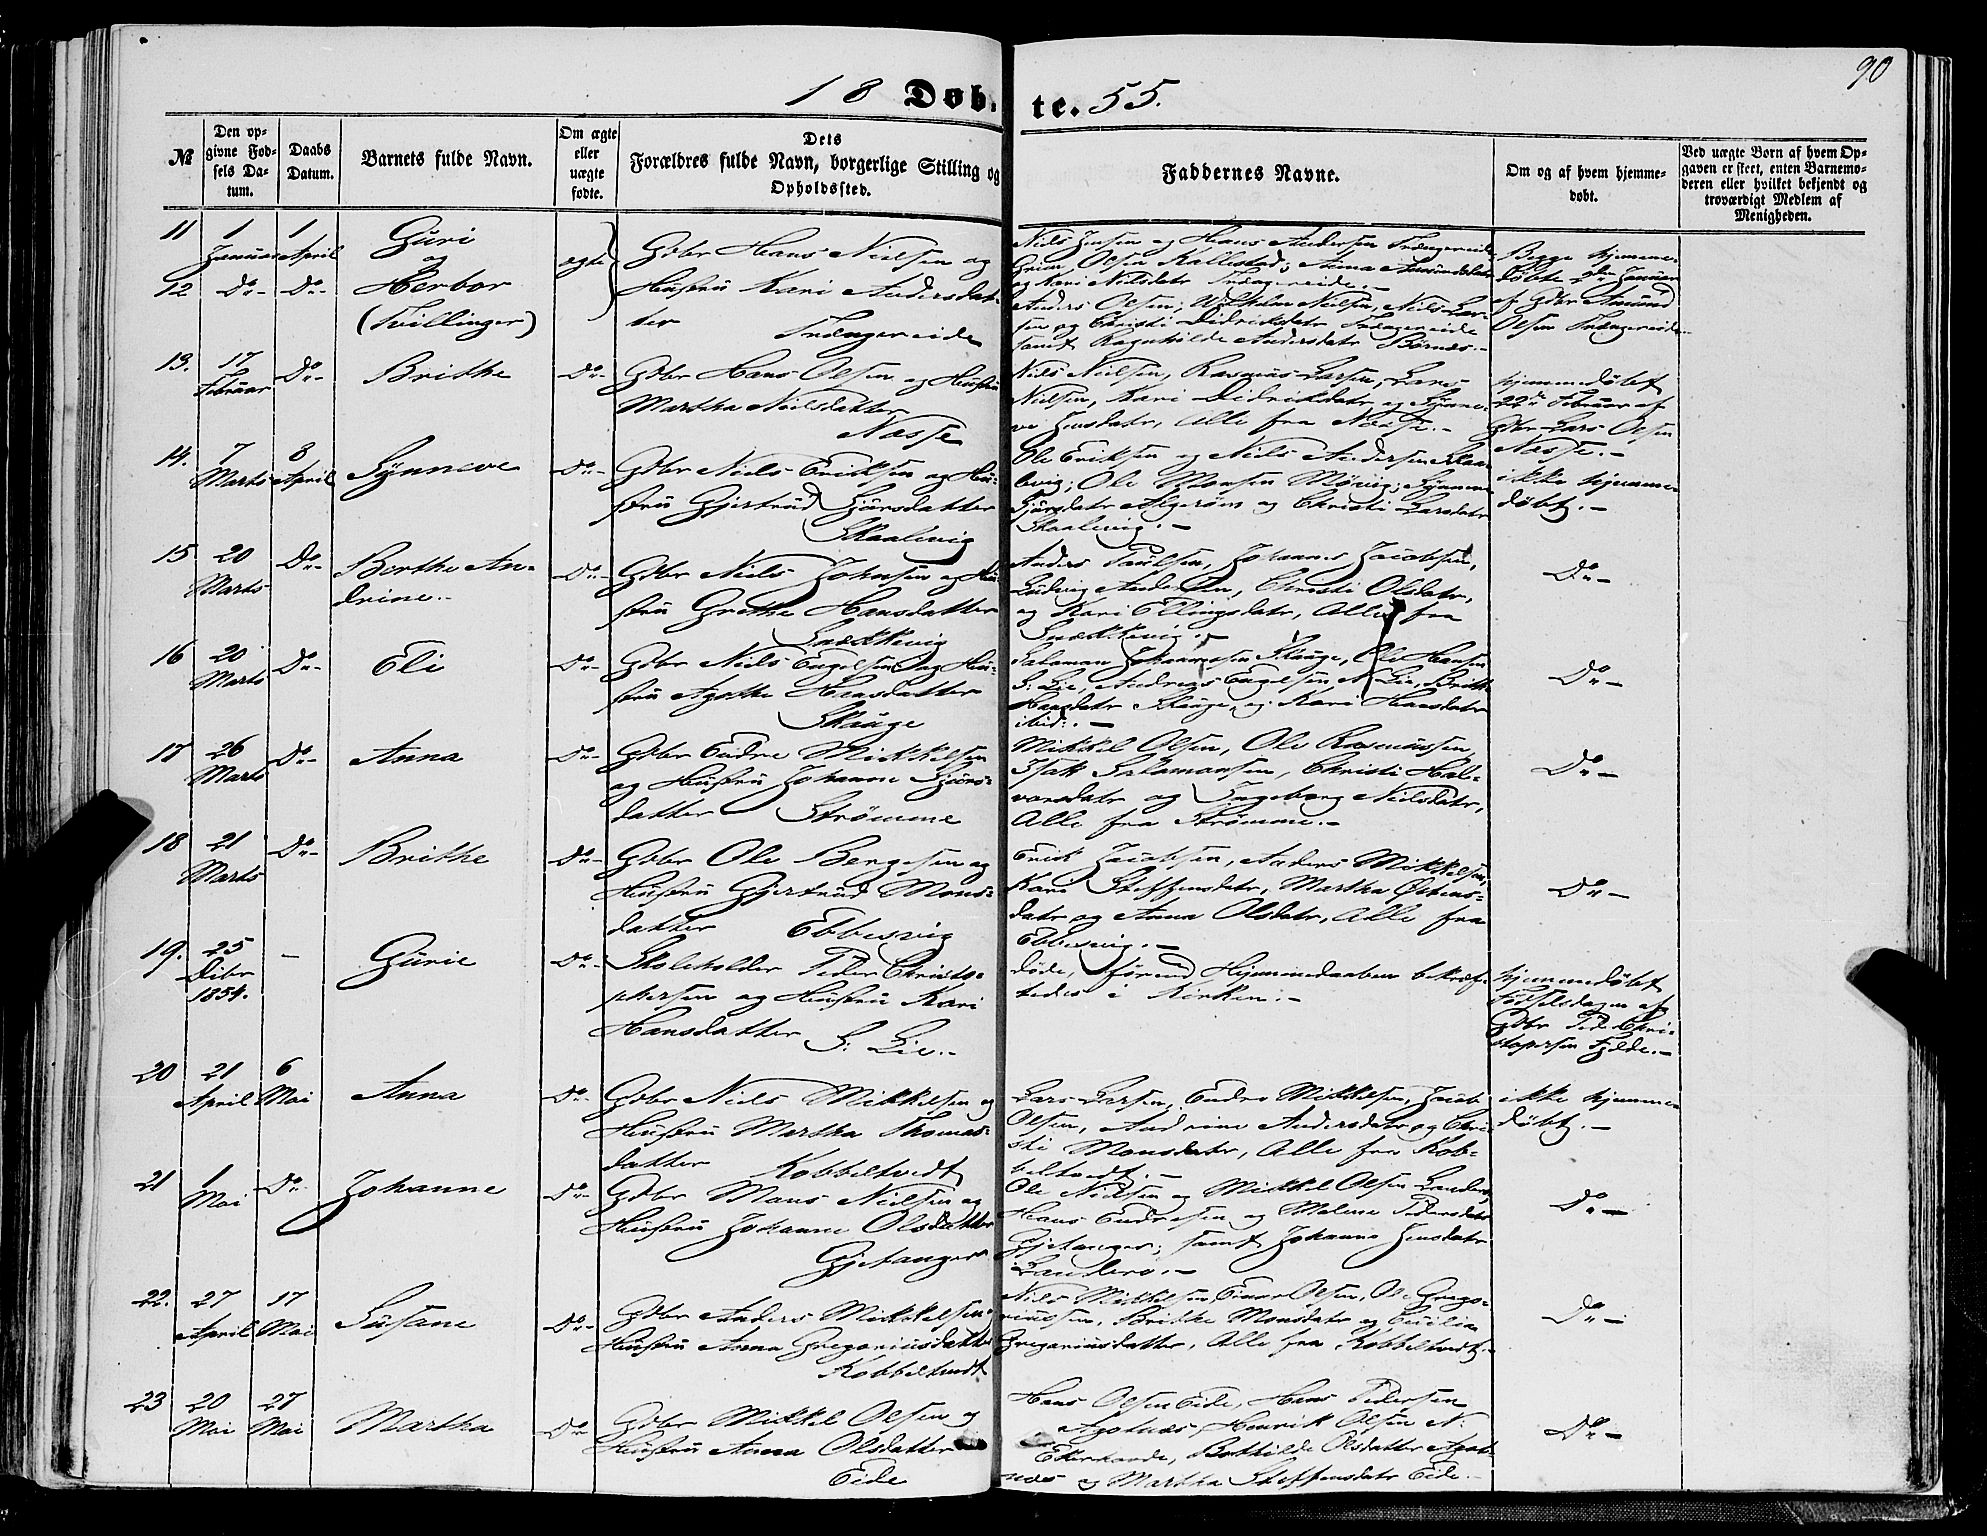 90
18 Døb-te. 55.
№
Den opgivne Fødsels Datum.
Daabs Datum.
Barnets fulde Navn.
Om ægte eller uægte fødte.
Dets Forældres fulde Navn, borgerlige Stilling og Opholdssted.
Faddernes Navne.
Om og af hvem hjemmedøbt.
Ved uægte Børn af hvem Opgaven er skeet, enten Barnemoderen eller hvilket bekjendt og troværdigt Medlem af Menigheden.
11 1 Januar 1 April Guri
og
12 Do- Do- Herbor
(Tvillinger)
ægte
Gdbr Hans Nielsen og
Hustru Kari Andersdat-
ter
Trængereide
Niels Jensen og Hans Andersen Trængereide
Grim Olsen Kallestad; Anna Amundsdatr
og Kari Nilsdatr Trængereide.-
Anders Olsen; Wilhelm Nielsen, Niels Lar-
sen og Christi Didriksdatr Trængereide
samt Ragnhilde Andersdatr Børnæs.-
Begge hjemme-
døbte Januar
af Gdbr Amund
Olsen Trængereide.-
13. 17 Februar Do- Brithe Do-
Gdbr Hans Olsen og Hustru
Martha Nielsdatter
Næsse
Niels Nielsen, Rasmus Larsen, Lars
Nielsen, Kari Didriksdatr og Synne-
ve Jensdatr, Alle fra Næsse.-
hjemmedøbt
22de Februar af
Gdbr Lars Olsen
Næsse.-
14. 7 Marts 8 April Synneve Do-
Gdbr Niels Eriksen og Hu-
stru Gjertrud Sjursdatter
Skaalevig
Ole Eriksen og Niels Andersen Skaa-
levig; Ole Monsen Møvig; Synneve
Sjursdatr Algerøen og Christi Larsdatr
Skaalevig.-
ikke hjemme-
døbt.-
15 20 Marts Do- Berthe An-
drine.-
Do-
Gdbr Niels Johnsen og Hu-
stru Grethe Hansdatter
Snekkevig
Anders Paulsen, Johannes Jacobsen,
Ludvig Andersen, Christi Olsdatr,
og Kari Ellingsdatr, Alle fra
Snekkevig.-
Do-
16 20 Marts Do- Eli Do-
Gdbr Niels Engelsen og Hu-
stru Agathe Hansdatter
Skauge
Salamon Johannesen Skauge, Ole Hansen
S: Lie, Andreas Engelsen N. Lie, Brithe
Hansdatr Skauge, og Kari Hansdatr
ibid:.-
Do-
17 26 Marts Do- Anna Do-
Gdbr Endre Mikkelsen
og Hustru Johanne Sjurs-
datter Strømme
Mikkel Olsen, Ole Rasmussen,
Isak Salamonsen, Christi Hal-
vorsdatr og Ingeborg Nielsdatr,
Alle fra Strømme.-
Do-
18 21 Marts Do- Brithe Do-
Gdbr Ole Bergesen og
Hustru Gjertrud Mons-
datter Ebbesvig
Erik Jacobsen, Anders Mikkelsen,
Kari Steffensdatr, Martha Østens-
datr og Anna Olsdatr, Alle fra
Ebbesvig.-
Do-
19. 25 Dcbr 1854. - Gurie Do-
Skoleholder Peder Christo-
phersen og Hustru Kari
Hansdatter S: Lie.-
døde, førend Hjemmedaaben bekræf-
tedes i Kirken.-
hjemmedøbt
Fødselsdagen af
Gdbr Peder Chri-
stopersen Fjelde.-
20 21 April 6 Mai Anna Do-
Gdbr Niels Mikkelsen og
Hustru Martha Thomas-
datter Kobbeltvedt
Lars Larsen, Endre Mikkelsen, Jacob
Olsen, Andrine Andersdatr og Chri-
sti Monsdatr, Alle fra Kob-
beltvedt.-
ikke hjemme-
døbt.-
21 1 Mai Do- Johanne Do-
Gdbr Mons Nielsen og
Hustru Johanne Olsdatter
Gjetanger
Ole Nielsen og Mikkel Olsen Landerø,
Hans Endresen og Malene Pedersdatr
Gjetanger; samt Johanne Jensdatr
Landerø.-
Do-
22. 27 April 17 Mai Susane Do-
Gdbr Anders Mikkelsen,
Hustru Anna Gregoriusdatter
Kobbeltvedt
Niels Mikkelsen, Einar Olsen, Ole Grego-
riussen, Brithe Monsdatr og Cicilia
Gregoriusdatter, Alle fra Kobbeltvedt.-
Do-
23 20 Mai 27 Mai Martha Do
Gdbr Mikkel Olsen og
Hustru Anna Olsdatter
Eide
Hans Olsen Eide, Hans Pedersen
Agotnæs, Henrik Olsen N.
Eidtrhavde, Bothilde Olsdatter Agot-
næs og Martha Steffensdatr Eide.-
Do-